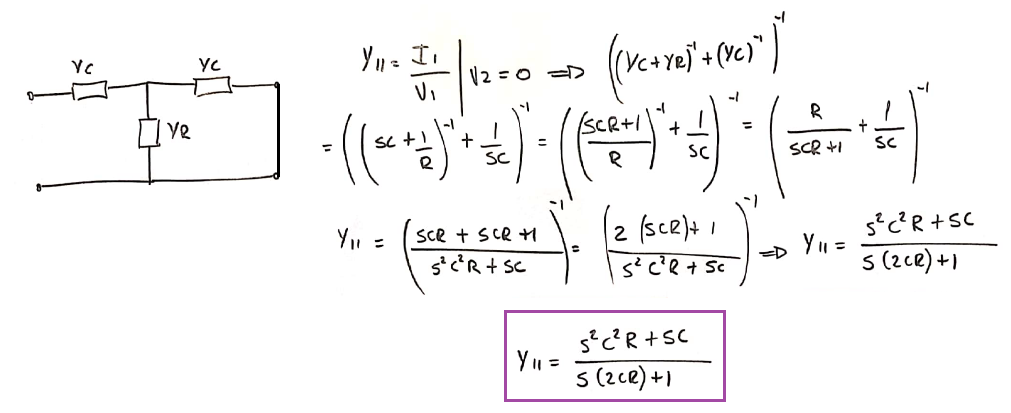 YC YC
YR
Y11 = I1/V1 | V2 = 0 ⇒ ((YC+YR)^-1 + (YC)^-1)^-1
= ((sc + 1/R)^-1 + 1/SC)^-1 = ((SCR+1/R)^-1 + 1/SC)^-1 = (R/SCR+1 + 1/SC)^-1
Y11 = (SCR + SCR+1/S²C²R + SC)^-1 = (2(SCR)+1/S²C²R + SC)^-1 ⇒ Y11 = S²C²R + SC/S(2CR)+1
Y11 = S²C²R + SC/S(2CR)+1